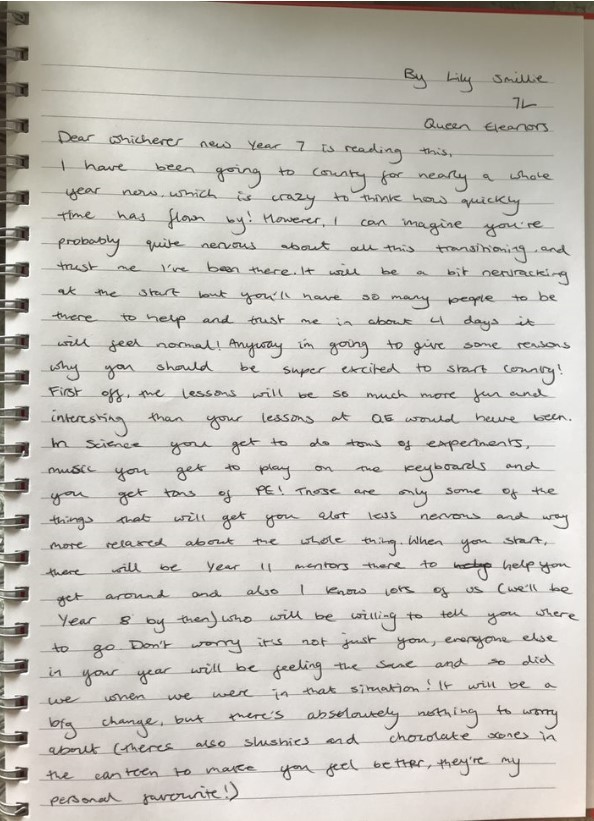 By Lily Smillie
7L
Queen Eleanors
Dear whicherer new Year 7 is reading this,
I have been going to county for nearly a whole
year now, which is crazy to think how quickly
time has flown by! However, I can imagine you're
probably quite nervous about all this transitioning, and
trust me I've been there. It will be a bit nervracking
at the start but you'll have so many people to be
there to help and trust me in about 4 days it
will feel normal! Anyway im going to give some reasons
why you should be super excited to start County!
First off, the lessons will be so much more fun and
interesting than your lessons at QE would have been.
In Science you get to do tons of experiments,
music you get to play on the keyboards and
you get tons of PE! Those are only some of the
things that will get you alot less nervous and way
more relaxed about the whole thing. When you start,
there will be Year 11 mentors there to help help you
get around and also I know lots of us (we'll be
Year 8 by then) who will be willing to tell you where
to go. Don't worry it's not just you, everyone else
in your year will be feeling the same and so did
we when we were in that situation! It will be a
big change, but there's absoloutely nothing to worry
about (theres also slushies and chocolate cones in
the canteen to make you feel better, they're my
personal favourite!)